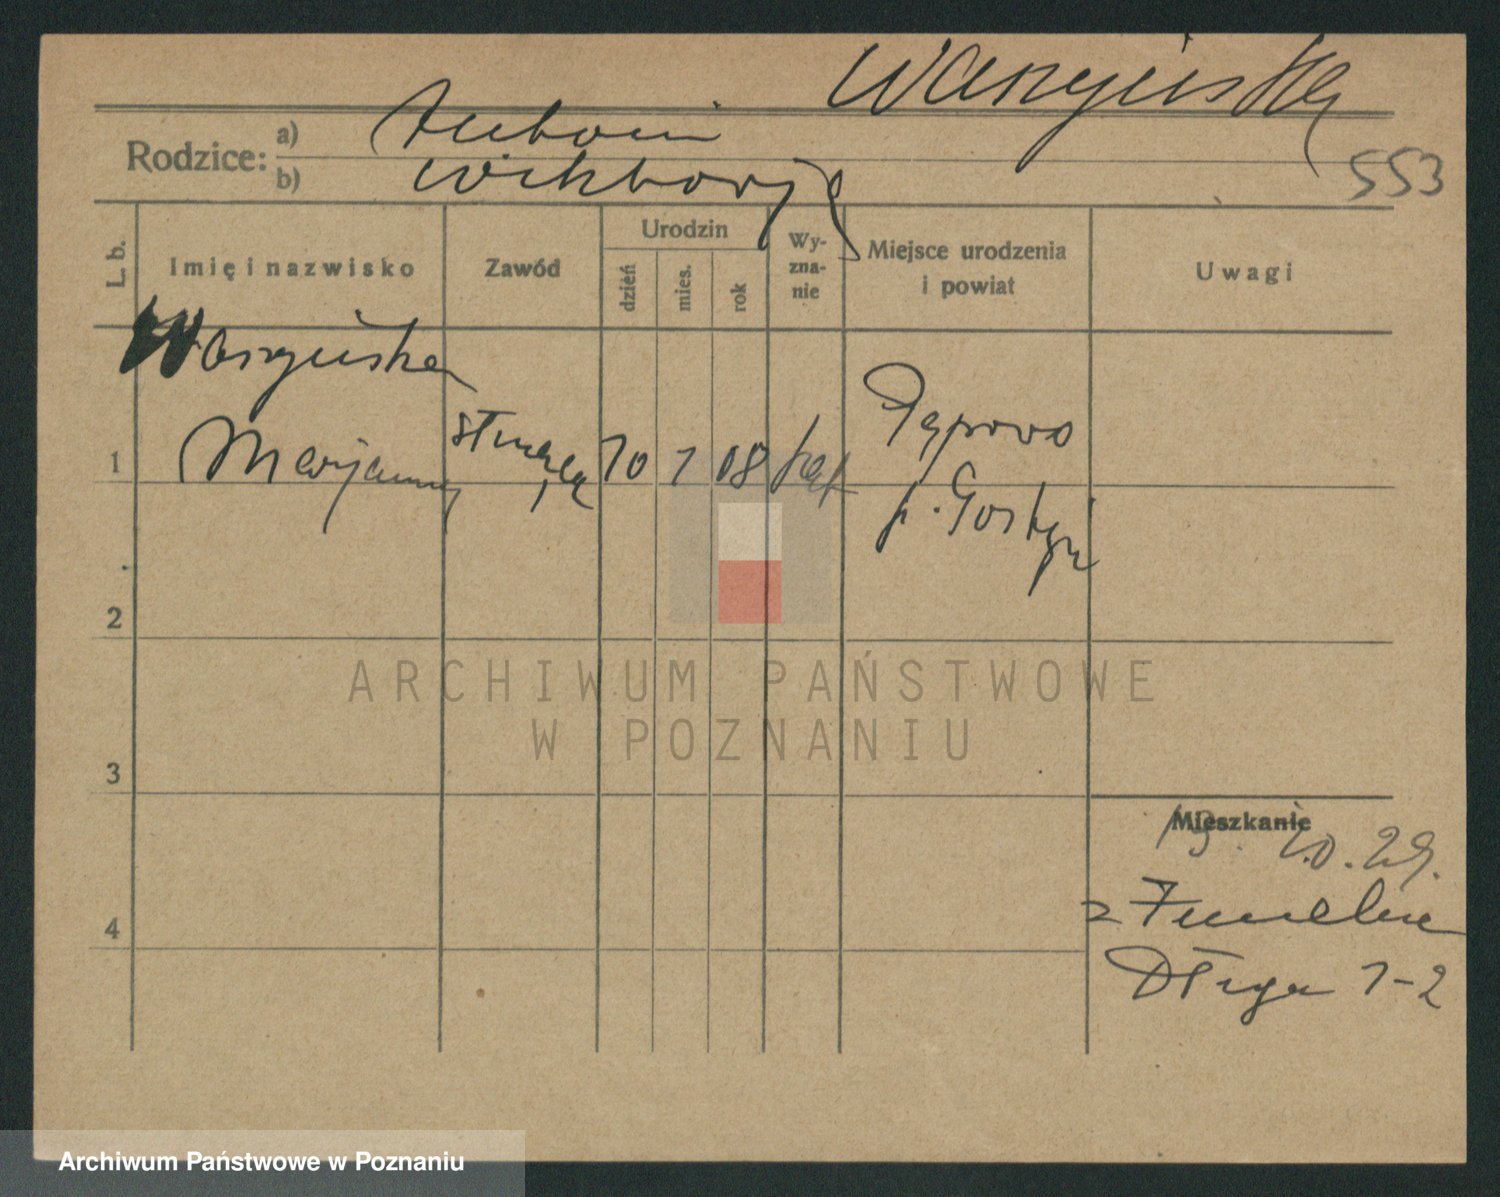 Waszyńska
Rodzice: a) Antoni
b) Wiktorja
553
L. b. Imię i nazwisko Zawód Urodzin dzień mies. rok Wy-zna-nie Miejsce urodzenia i powiat Uwagi
Waszyńska
1 Marjanna służąca 10 1 08 kat Pępowo
p. Gostyń
2
ARCHIWUM PAŃSTWOWE
W POZNANIU
3
Mieszkanie
10.29.
z
4
Długa 1-2
Archiwum Państwowe w Poznaniu